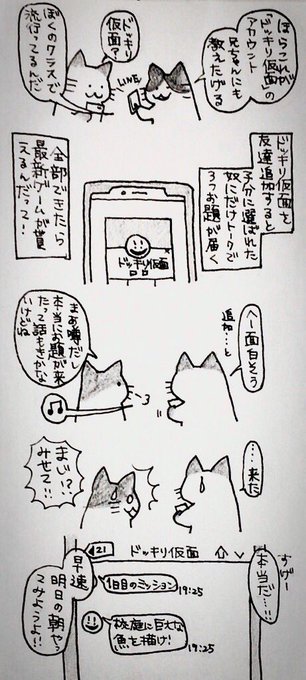 ほらこれが
「ドッキリ仮面」の
アカウント
兄ちゃんにも
教えたげる
ドッキリ
仮面?
LINE
ぼくのクラスで
流行ってるんだ
ドッキリ仮面を
友達追加すると
子分に選ばれた
奴にだけトークで
3つお題が届く
ドッキリ仮面
全部できたら
最新ゲームが貰
えるんだって!
へー面白そう
追加…と
まあ噂だし
本当にお題が来
たって話もきかな
いけどね
…来た
まじ!?
みせて!!
すげー
本当だ…!!
21 ドッキリ仮面
1日目のミッション
19:25
校庭に巨大な
魚を描け!
19:25
早速
明日の朝やっ
てみようよ!!